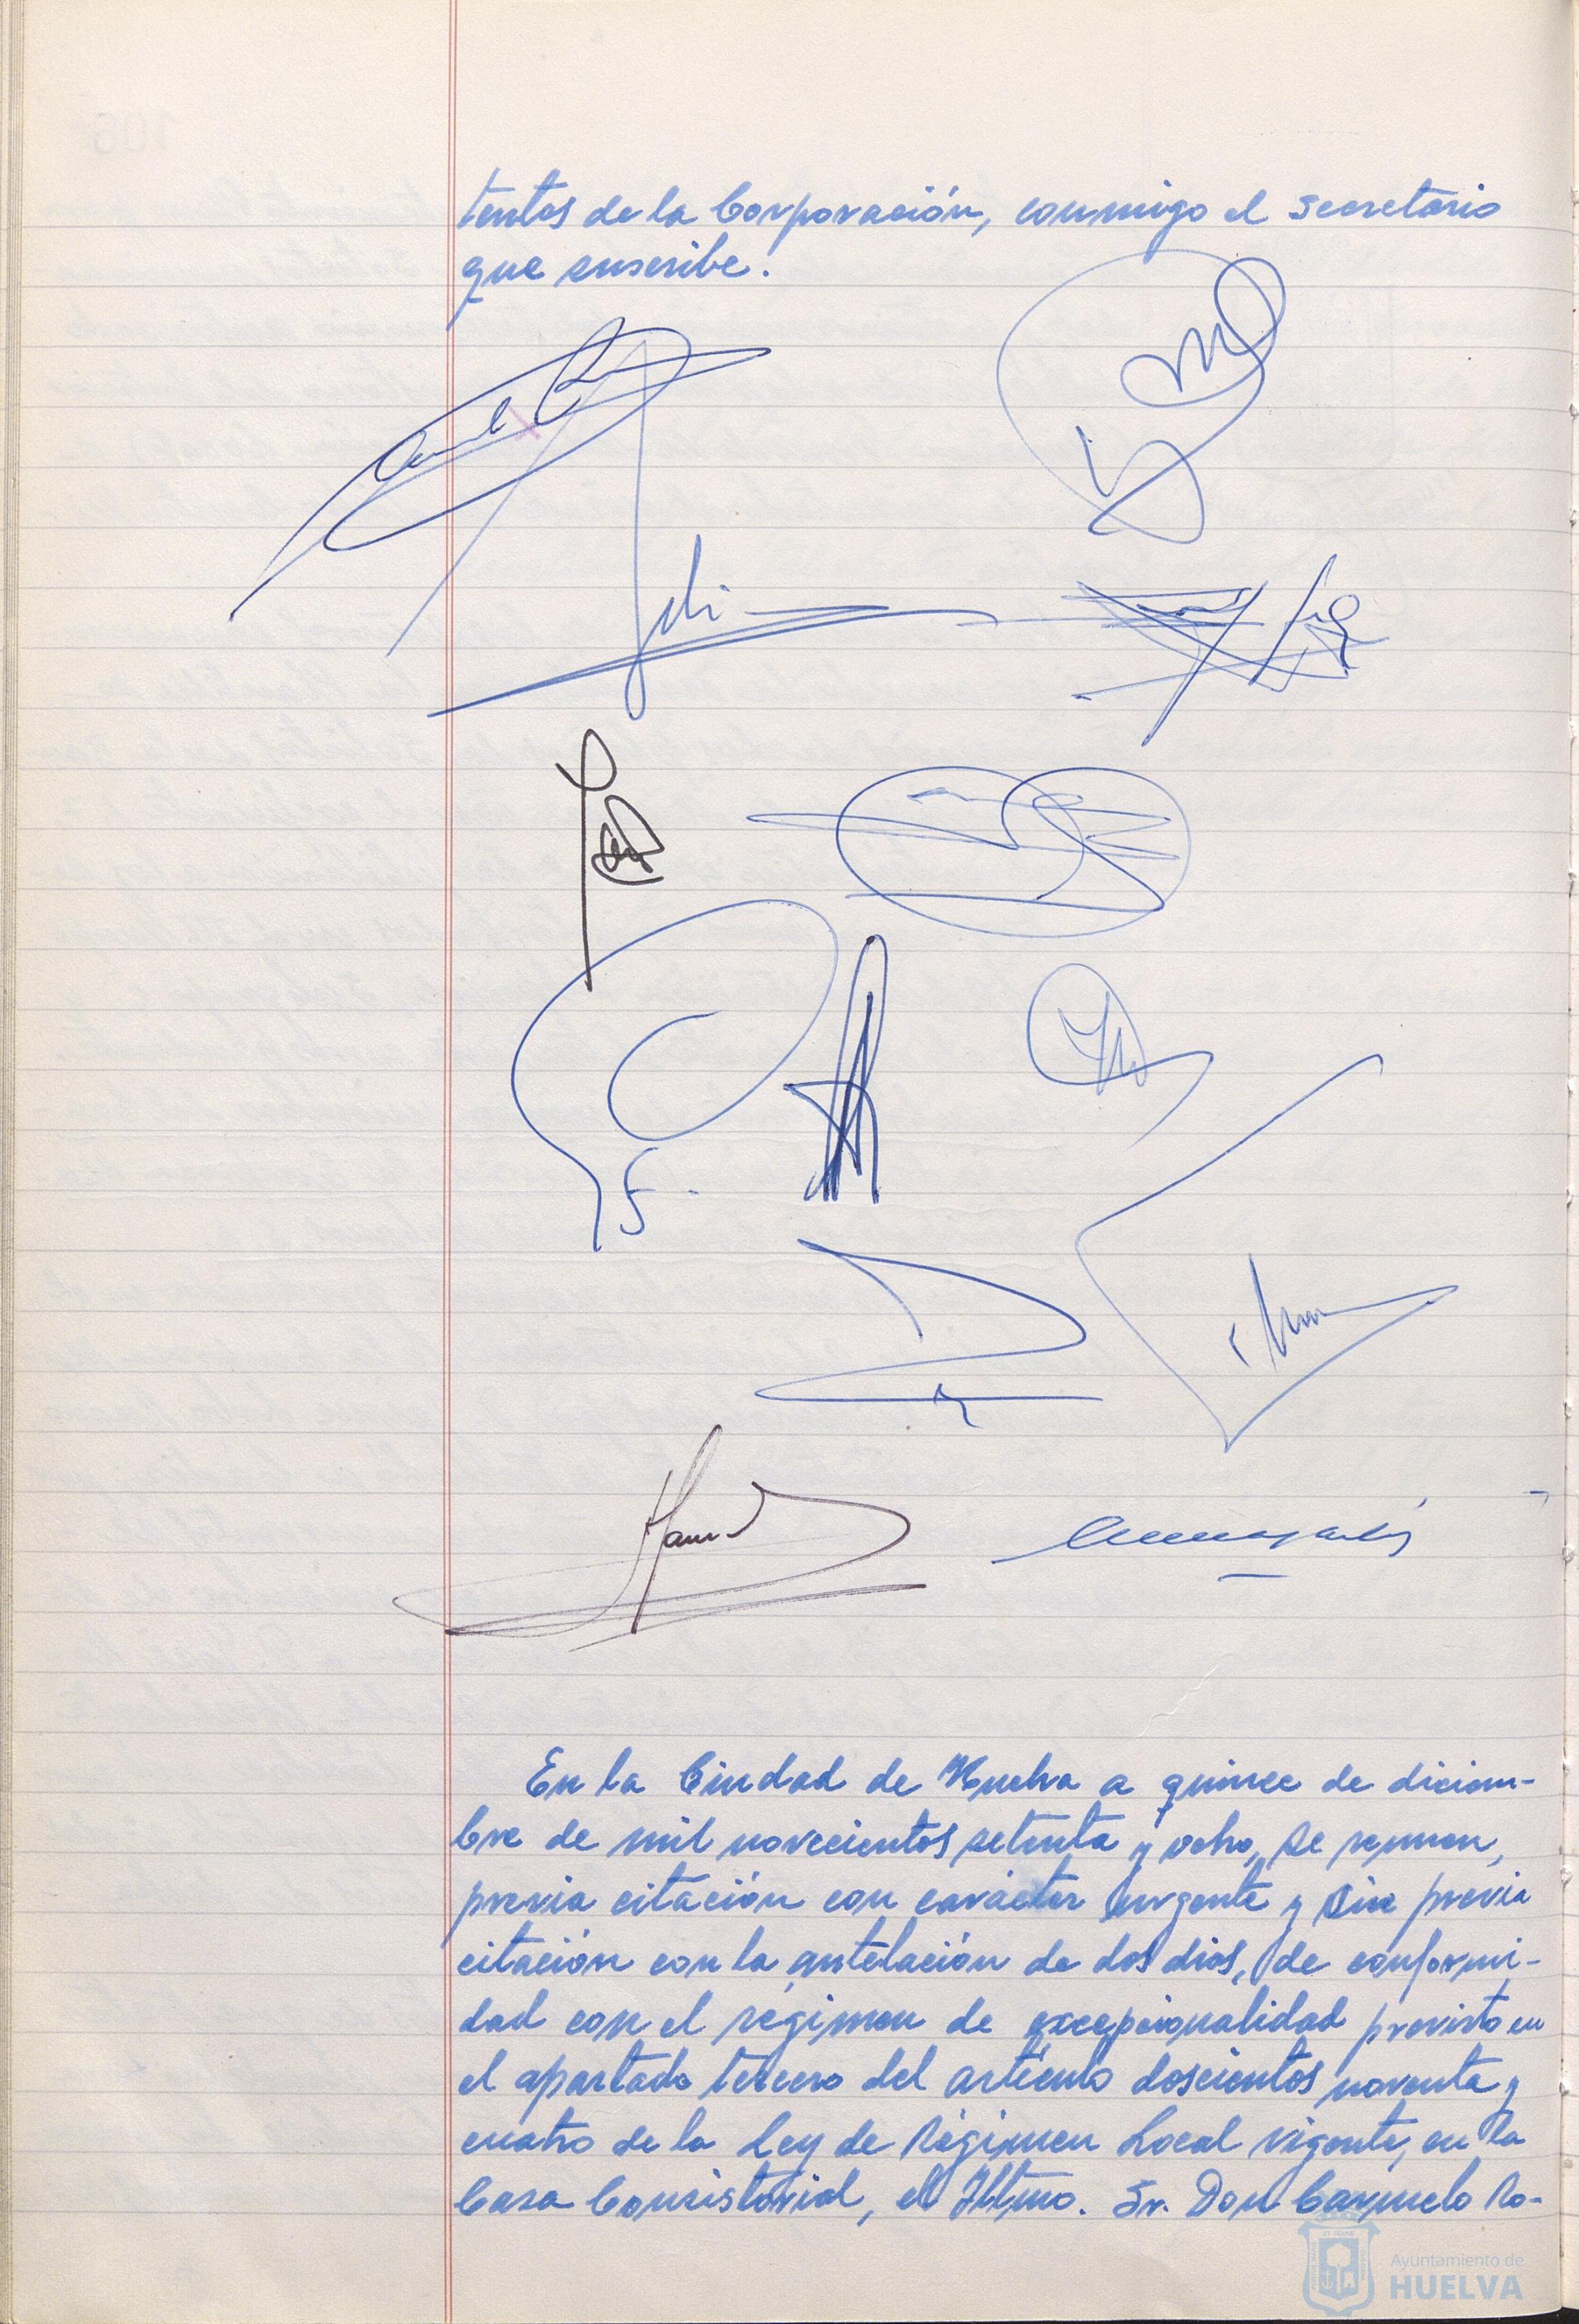 tentes de la Corporación, conmigo el secretario
que suscribe.
En la Ciudad de Huelva a quince de diciem-
bre de mil novecientos setenta y ocho, se reunen,
previa citación con carácter urgente y sin previa
citación con la antelación de dos dias, de conformi-
dad con el régimen de excepcionalidad previsto en
el apartado tercero del artículo doscientos noventa y
cuatro de la Ley de Régimen Local vigente, en la
Casa Consistorial, el Iltmo. Sr. Don Carmelo Ro-
Ayuntamiento de
HUELVA